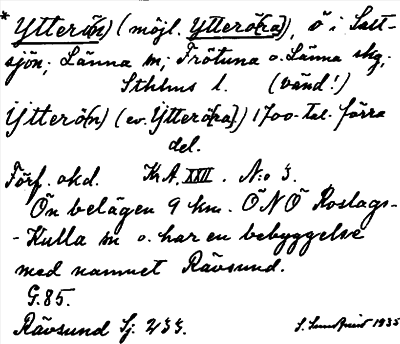 * Ytterö(n) (möjl. Ytterö(ra)), ö i Salt-
sjön; Länna sn; Frötuna o. Länna skg;
Sthlms l. (vänd!)
Ytterö(n) (ev. Ytterö(ra)) 1700-tal. förra
del.
Förf. okd. Kr.A. XXII. N:o 3.
Ön belägen 9 km. ÖNÖ Roslags-
-Kulla sn o. har en bebyggelse
med namnet Rävsund.
G.85.
Rävsund Sj. 233.
1935